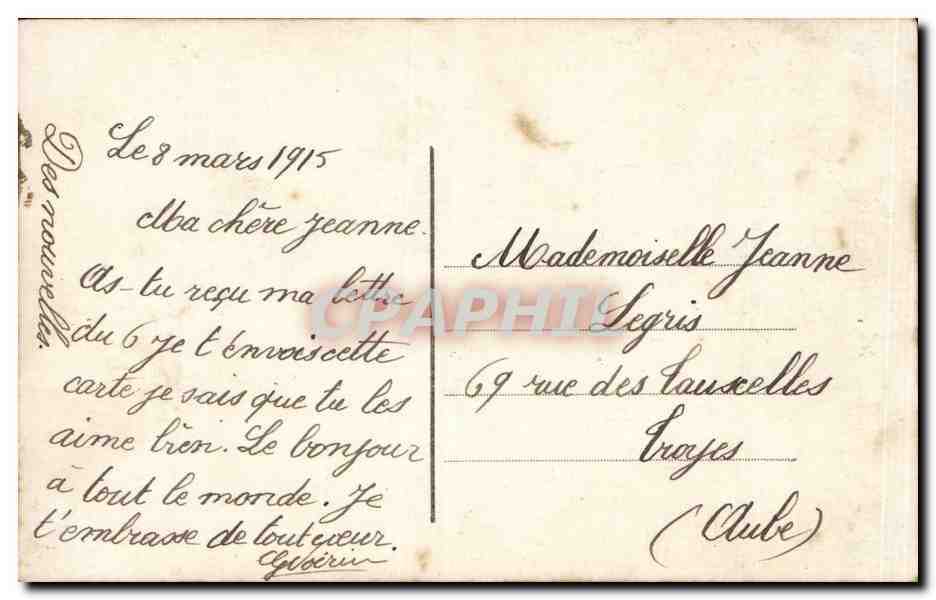 Le 8 mars 1915
Ma chère Jeanne.
As-tu reçu ma lettre
du 6 Je t'envois cette
carte je sais que tu les
aime bien. Le bonjour
à tout le monde. Je
t'embrasse de tout cœur.
GVoirin
Des nouvelles.
Mademoiselle Jeanne
Legris
69 rue des Tauxelles
Troyes
(Aube)
CPAPHIL